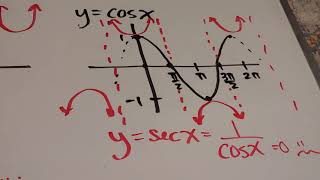 y=cosx
π/2 π 3π/2 2π
-1
y=secx= 1/cosx =0